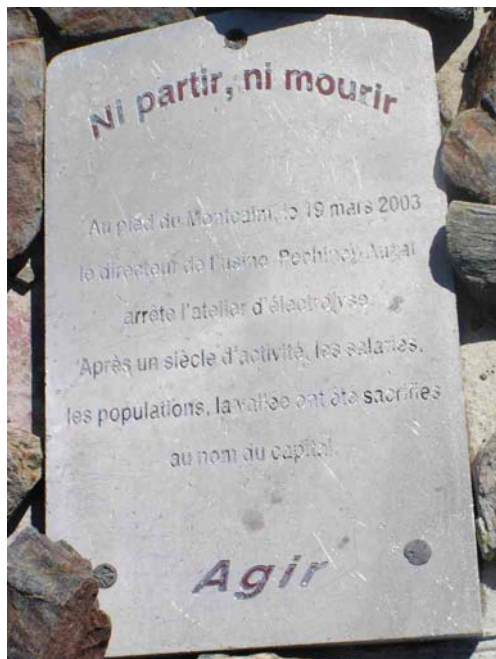 Ni partir, ni mourir
Au pied du Montcalm, le 19 mars 2003
le directeur de l'usine Pechiney Auzat
arrête l'atelier d'électrolyse.
Après un siècle d'activité, les salariés,
les populations, la vallée ont été sacrifiés
au nom du capital.
Agir